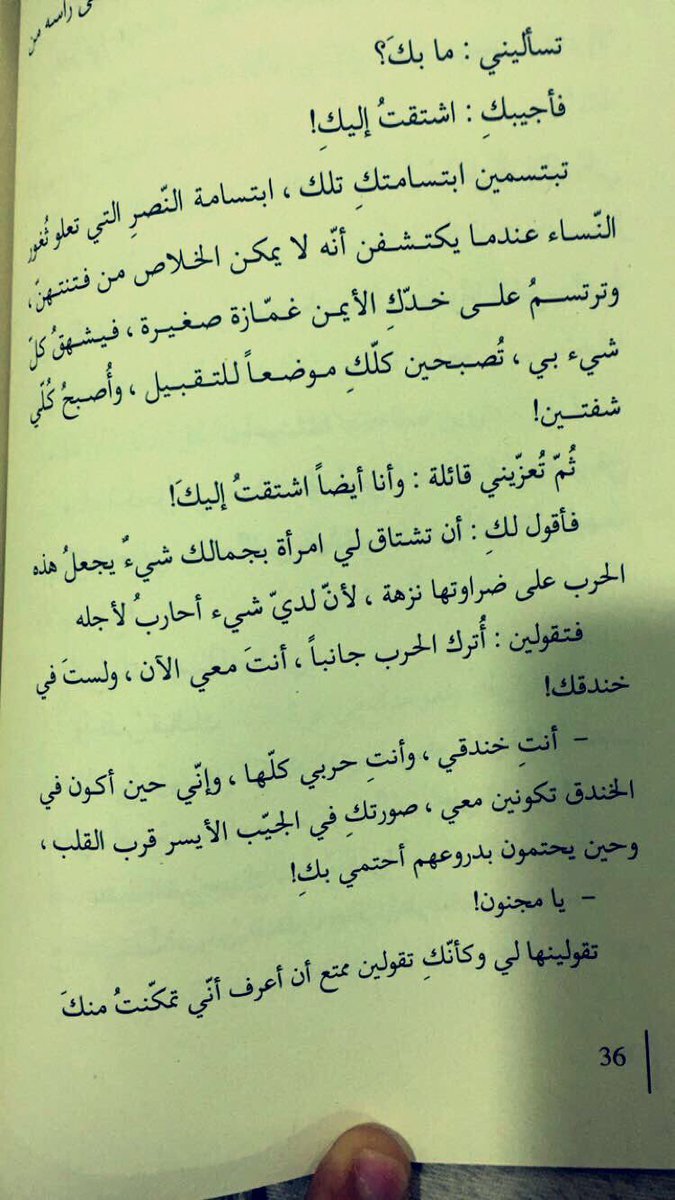 ى رأسه من
تسأليني : ما بكَ؟
فأجيبكِ : اشتقتُ إليكِ!
تبتسمين ابتسامتكِ تلك ، ابتسامة النّصرِ التي تعلو ثُغور
النّساء عندما يكتشفن أنّه لا يمكن الخلاص من فتنتهنّ ،
وترتسمُ على خدّكِ الأيمن غمّازة صغيرة ، فيشهقُ كلّ
شيء بي ، تُصبحين كلّكِ موضعاً للتقبيل ، وأُصبحُ كُلّي
شفتين!
ثُمّ تُعزّيني قائلة : وأنا أيضاً اشتقتُ إليكَ!
فأقول لكِ : أن تشتاق لي امرأة بجمالك شيءٌ يجعلُ هذه
الحرب على ضراوتها نزهة ، لأنّ لديّ شيء أحاربُ لأجله
فتقولين : أُترك الحرب جانباً ، أنتَ معي الآن ، ولستَ في
خندقك!
– أنتِ خندقي ، وأنتِ حربي كلّها ، وإنّي حين أكون في
الخندق تكونين معي ، صورتكِ في الجيّب الأيسر قرب القلب ،
وحين يحتمون بدروعهم أحتمي بكِ!
– يا مجنون!
تقولينها لي وكأنّكِ تقولين ممتع أن أعرف أنّي تمكّنتُ منكَ
36